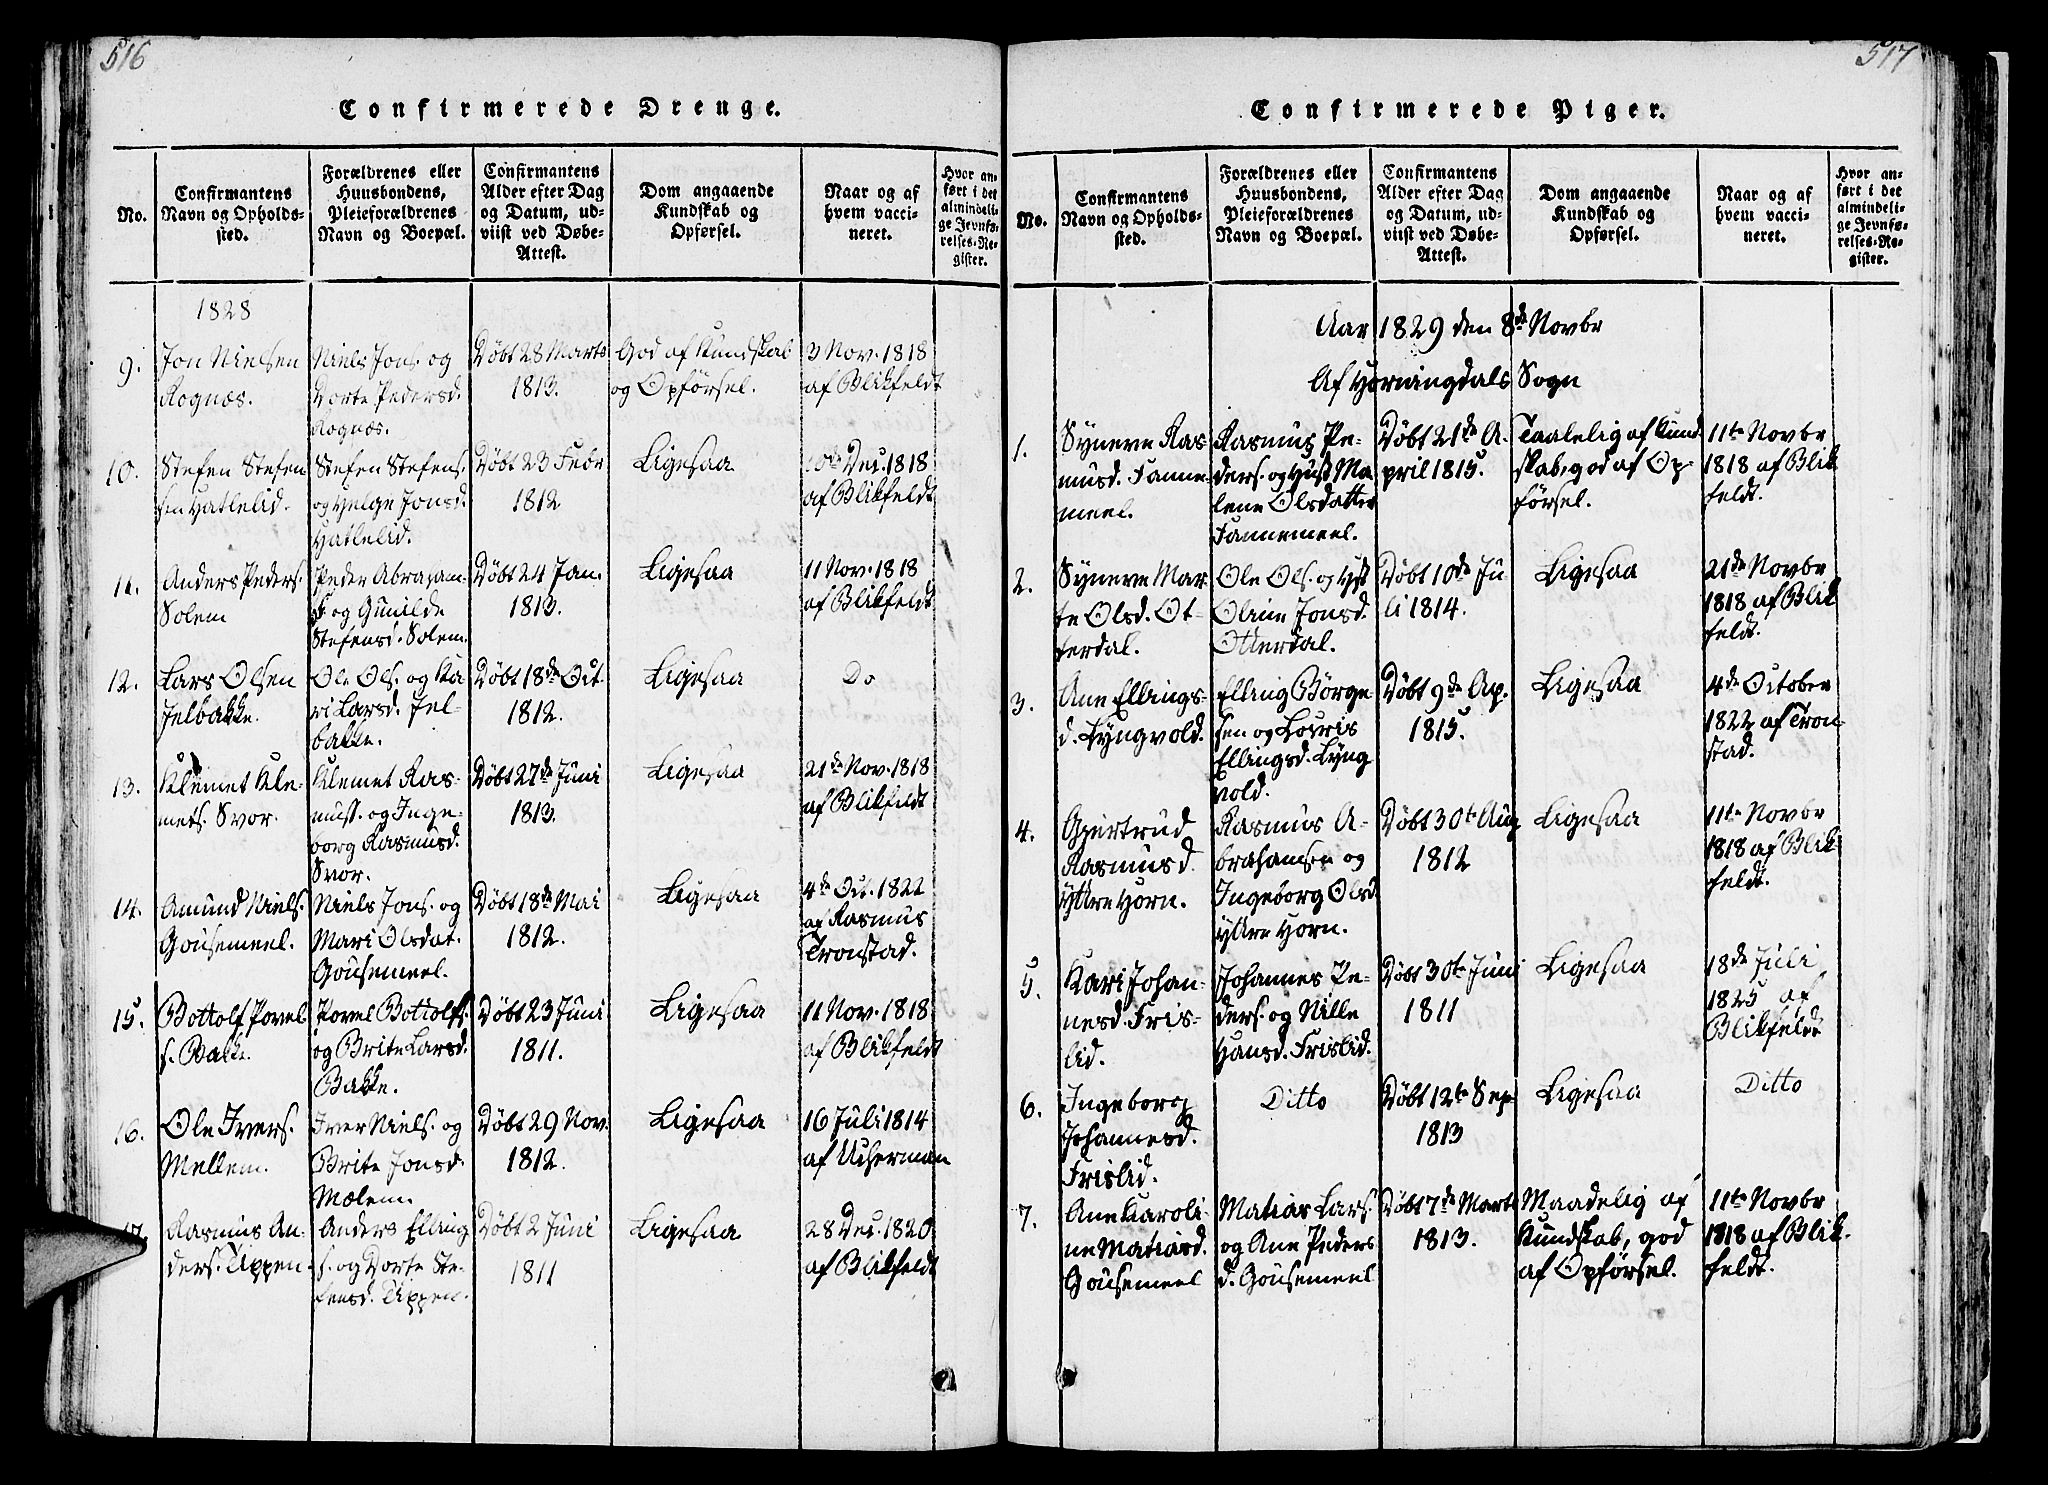 516
Confirmerede Drenge.
No.
Confirmantens
Navn og Opholds-
sted.
Forældrenes eller
Huusbondens,
Pleieforældrenes
Navn og Boepæl.
Confirmantens
Alder efter Dag
og Datum, ud-
viist ved Døbe-
Attest.
Dom angaaende
Kundskab og
Opførsel.
Naar og af
hvem vacci-
neret.
Hvor an-
ført i det
almindeli-
ge Jevnfø-
relses-Re-
gister.
1828
9.
Jon Nielsen
Rognæs.
Niels Jons. og
Dorte Pedersd.
Rognæs.
Døbt 28 Marts
1813.
God af Kundskab
og Opførsel.
3 Nov. 1818
af Blikfeldt
10.
Stefen Stefen
sen Hatlelid.
Stefen Stefens.
og Helge Jonsd.
Hatlelid.
Døbt 23 Febr
1812
Ligesaa
10de Dec. 1818
af Blikfeldt
11.
Anders Peders.
Solem
Peder Abraham-
s og Gunilde
Stefensd. Solem.
Døbt 24 Jan.
1813.
Ligesaa
11 Nov. 1818
af Blikfeldt
12.
Lars Olsen
Jelbakke.
Ole Ols. og Ka
ri Larsd. Jel-
bakke.
Døbt 18de Oct.
1812.
Ligesaa
Do
13.
Klemet Kle-
mets. Svor.
Klemet Ras-
muss. og Inge-
borg Rasmusd.
Svor.
Døbt 27de Juni
1813.
Ligesaa
21de Nov. 1818
af Blikfeldt
14.
Amund Niels.
Gousemeel.
Niels Jons. og
Mari Olsdat.
Gousemeel.
Døbt 18de Mai
1812.
Ligesaa
4de Oct. 1822
af Rasmus
Tronstad.
15.
Bottolf Povel
s. Bakke.
Povel Bottolfs.
og Brite Larsd.
Bakke.
Døbt 23 Juni
1811.
Ligesaa
11 Nov. 1818
af Blikfeldt
16.
Ole Ivers.
Mellem.
Iver Niels. og
Brite Jonsd.
Mælem.
Døbt 29 Nov.
1812.
Ligesaa
16 Juli 1814
af Ucherman
17.
Rasmus An-
ders. Tippen.
Anders Elling
s. og Dorte Ste-
fensd. Tippen.
Døbt 2 Juni
1811
Ligesaa
28 Dec. 1820
af Blikfeldt
517
Confirmerede Piger.
No.
Confirmantens
Navn og Opholds-
sted.
Forældrenes eller
Huusbondens,
Pleieforældrenes
Navn og Boepæl.
Confirmantens
Alder efter Dag
og Datum, ud-
viist ved Døbe-
Attest.
Dom angaaende
Kundskab og
Opførsel.
Naar og af
hvem vacci-
neret.
Hvor an-
ført i det
almindeli-
ge Jevnfø-
relses-Re-
gister.
Aar 1829 den 8de Novbr
Af Horningdals Sogn
1.
Synneve Ras
musd. Fanne-
meel.
Rasmus Pe-
ders. og Hust Ma-
lene Olsdatter
Fannemeel.
Døbt 21de A-
pril 1815.
Taalelig af Kund
skab, god af Op-
førsel.
11te Novbr
1818 af Blik
feldt.
2.
Synneve Mar
te Olsd. Ot-
terdal.
Ole Ols. og Hst
Oline Jonsd.
Otterdal.
Døbt 10de Ju
li 1814.
Ligesaa
21de Novbr
1818 af Blik
feldt.
3.
Ane Ellings-
d. Lyngvold.
Elling Børge
sen og Lovris
Ellingsd. Lyng
vold.
Døbt 9de Ap.
1815.
Ligesaa
4de October
1822 af Tron-
stad.
4.
Gjertrud
Rasmusd.
yttre Horn.
Rasmus A-
brahamsen og
Ingeborg Olsd.
yttre Horn.
Døbt 30te Aug
1812
Ligesaa
11te Novbr
1818 af Blik-
feldt.
5.
Kari Johan-
nesd. Fris-
lid.
Johannes Pe-
ders. og Nille
Hansd. Frislid.
Døbt 30te Juni
1811
Ligesaa
18de Juli
1825 af
Blikfeldt
6.
Ingeborg
Johannesd.
Frislid.
Ditto
Døbt 12te Sep
1813
Ligesaa
Ditto
7.
Ane Karoli-
ne Matiasd.
Gousemeel
Matias Lars.
og Ane Peders
d. Gousemeel
Døbt 7de Marts
1813.
Maadelig af
Kundskab, god
af Opførsel.
11te Novbr
1818 af Blik-
feldt.